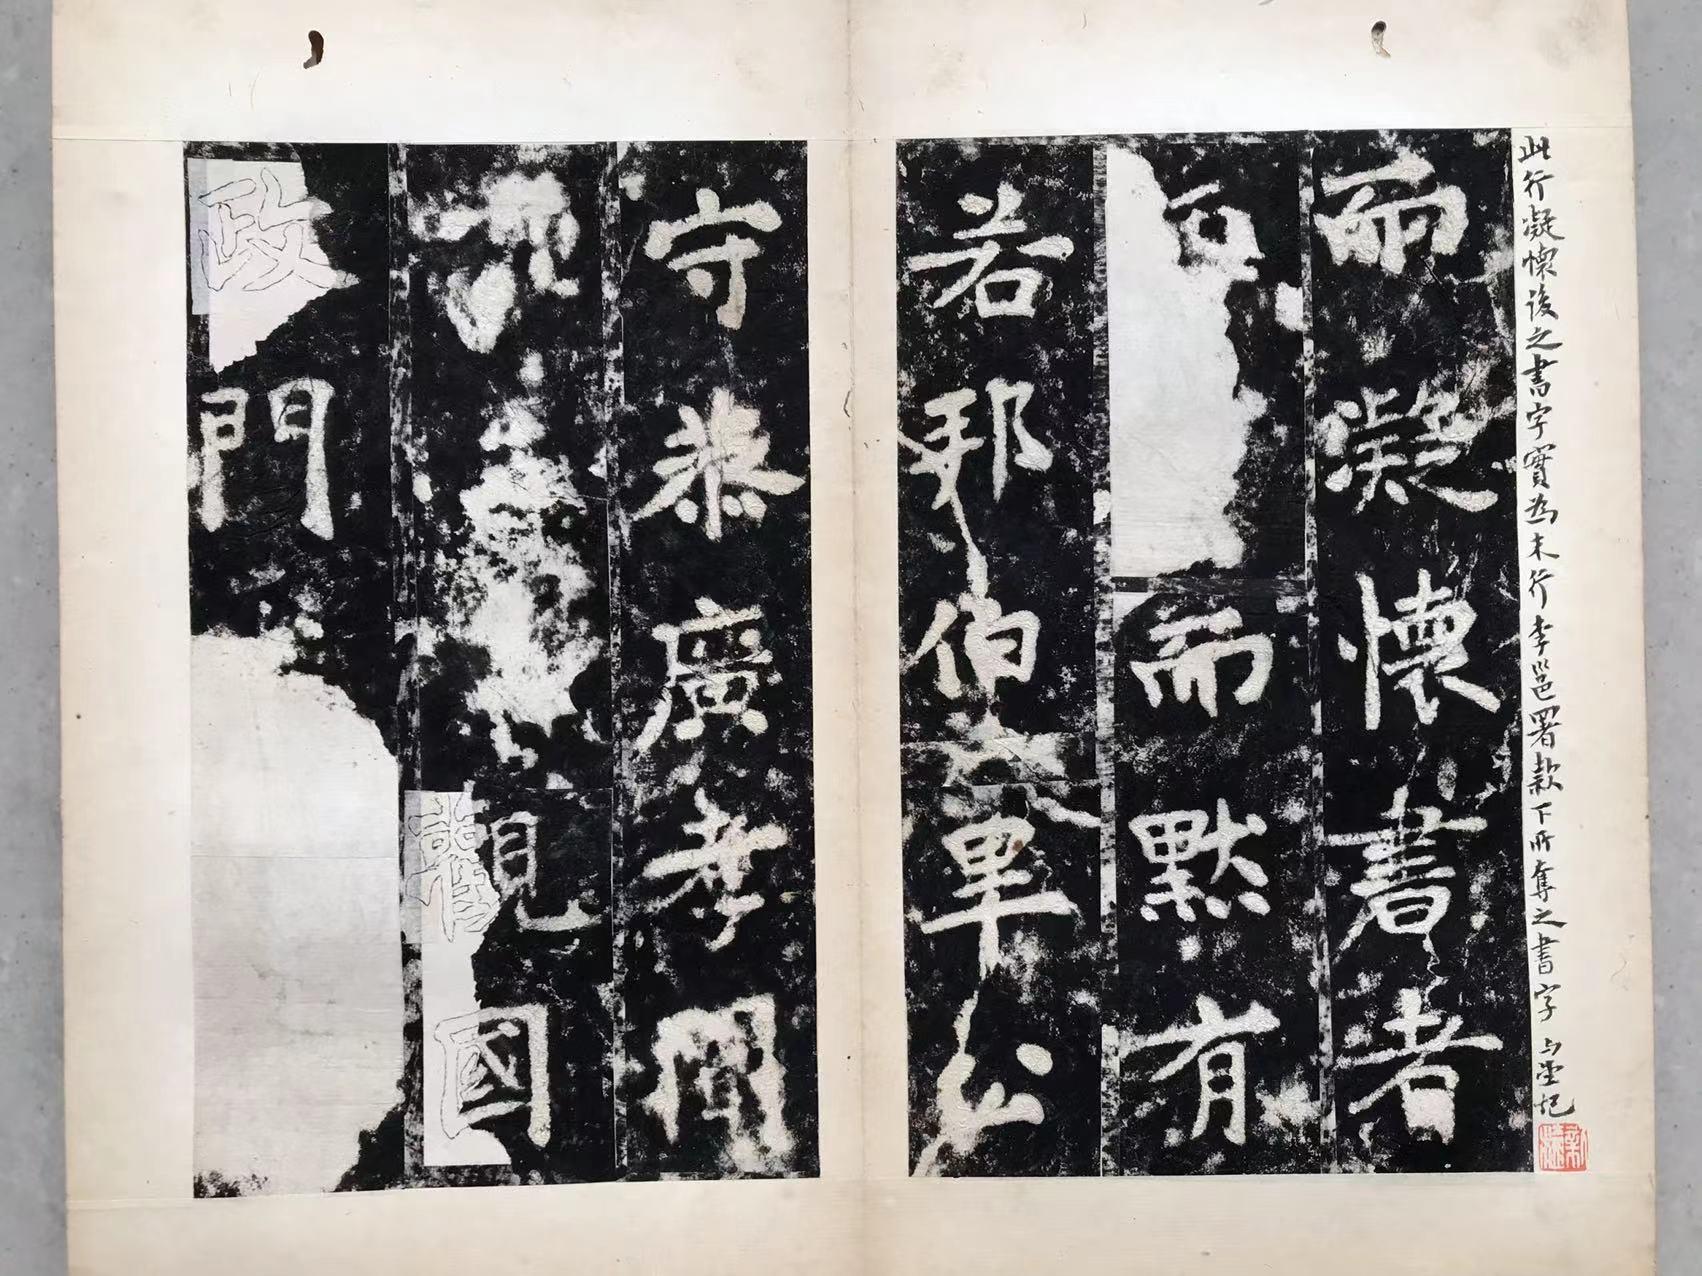 此行凝懷後之書字實為末行李邕署款下所奪之書字
而凝懷書者
而默有
若邦伯畢公
守恭廣孝聞
觀國
政門